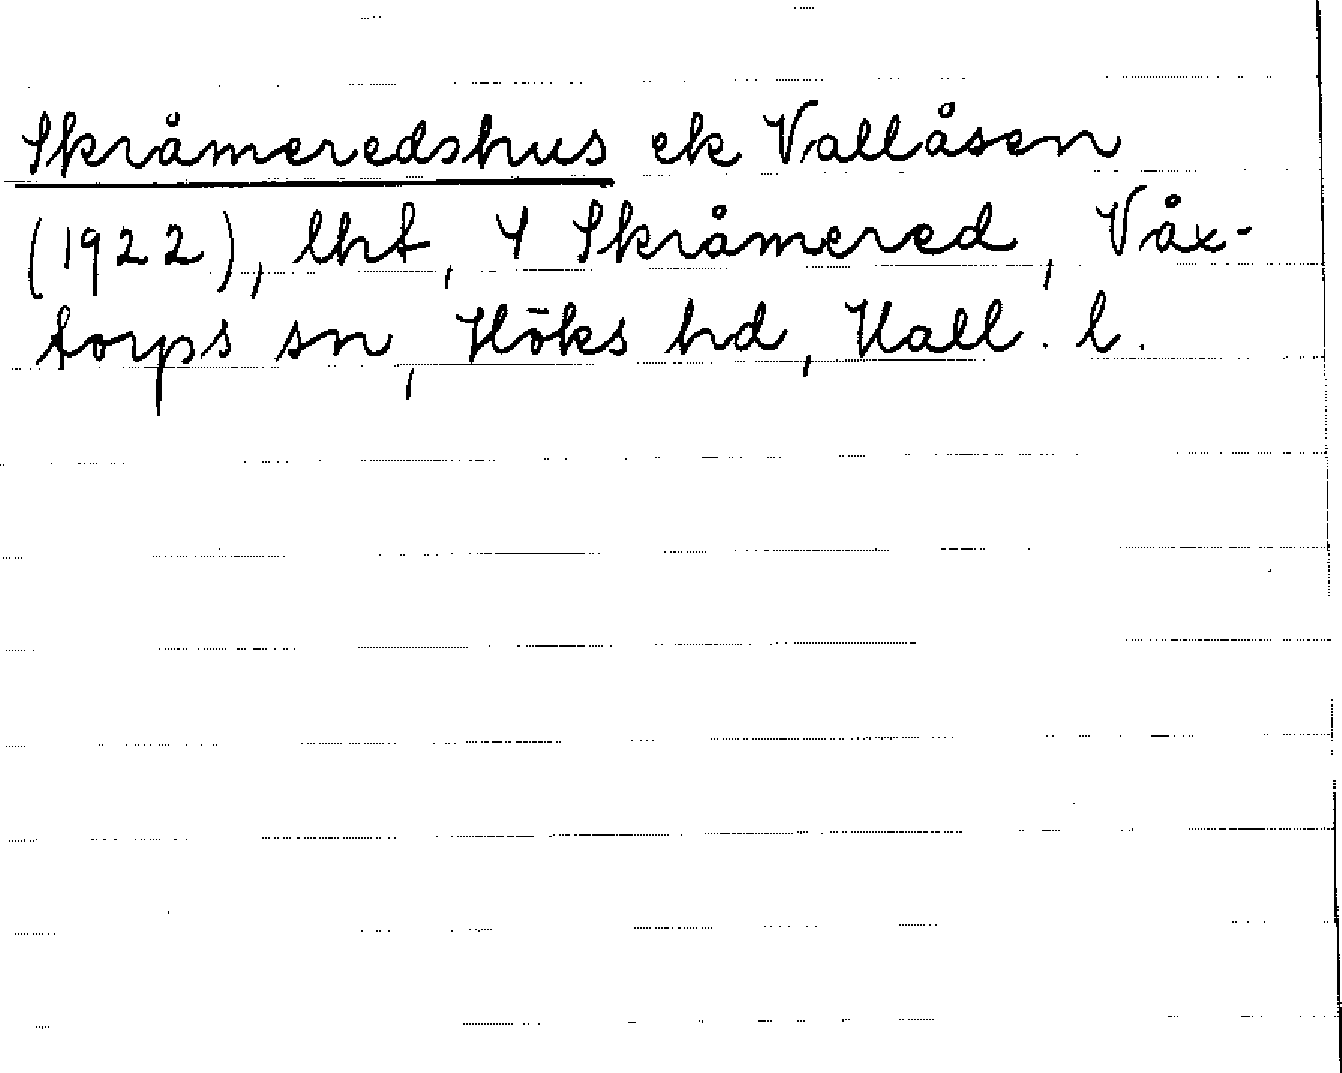 Skråmeredshus ek Vallåsen
(1922), lht, Y Skråmered, Våx-
torps sn, Höks hd, Hall. l.